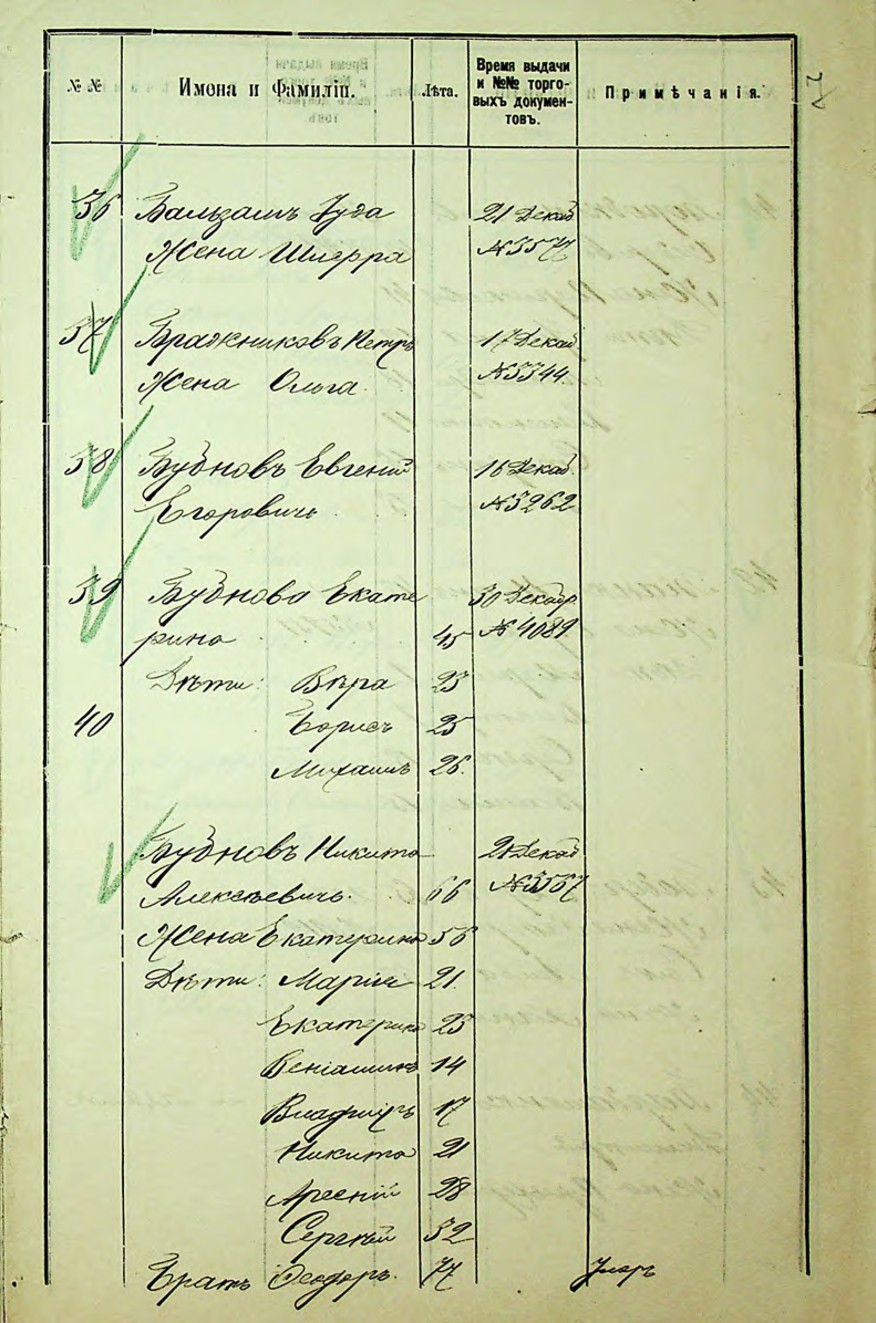 № № Имена и Фамиліи. Лѣта. Время выдачи и №№ торговыхъ документовъ. Примѣчанія.
36 Бальзамъ Іуда 21 Декаб
Жена Шифра №3577
37 Бражниковъ Петръ 17 Декаб
Жена Ольга. №3344.
38 Бубновъ Евгеній 16 Декаб.
Егоровичъ №3262
39 Бубнова Екате 30 Декабр
рина 45 №4089
Дѣти: Вѣра 23
40 Борисъ 25
Михаилъ 26.
Бубновъ Никита 21 Декаб
Алексѣевичъ. 66 №3567
Жена Екатерина 56
Дѣти: Марія 21.
Екатерина 23
Веніаминъ 14
Владиміръ 17
Никита 21
Арсеній 28
Сергѣй 32
Братъ Ѳеодоръ. 77 Умеръ